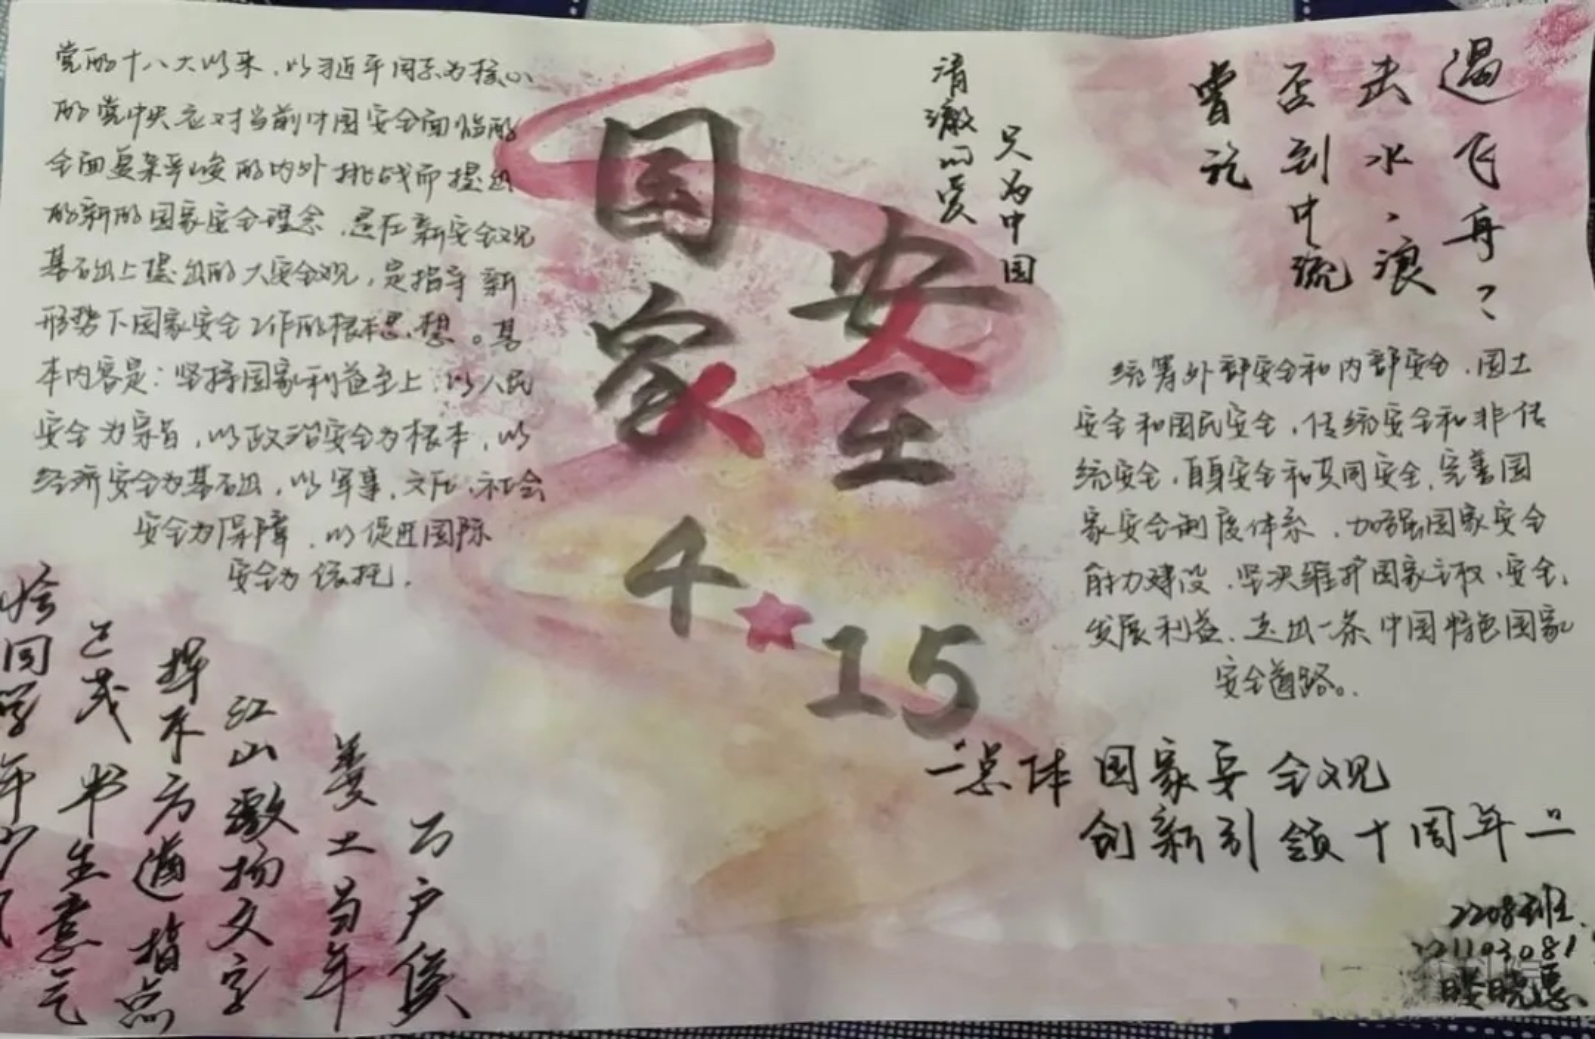 党的十八大以来，以习近平同志为核心
的党中央应对当前中国安全面临的
全面复杂严峻的内外挑战而提出
的新的国家安全理念，是在新安全观
基础上提出的大安全观，是指导新
形势下国家安全工作的根本思想。基
本内容是：坚持国家利益至上，以人民
安全为宗旨，以政治安全为根本，以
经济安全为基础，以军事、文化、社会
安全为保障，以促进国际
安全为依托．
国家
安至
4★15
清澈的爱
只为中国
曾记
否到中流
击水、浪
遏飞舟？
统筹外部安全和内部安全、国土
安全和国民安全、传统安全和非传
统安全、自身安全和共同安全，完善国
家安全制度体系，加强国家安全
能力建设，坚决维护国家主权、安全、
发展利益，走出一条中国特色国家
安全道路。
“总体国家安全观
创新引领十周年”
恰同学年少风
正茂书生意气
挥斥方遒指点
江山激扬文字
粪土当年
万户侯
2208班
221103081
晓惠